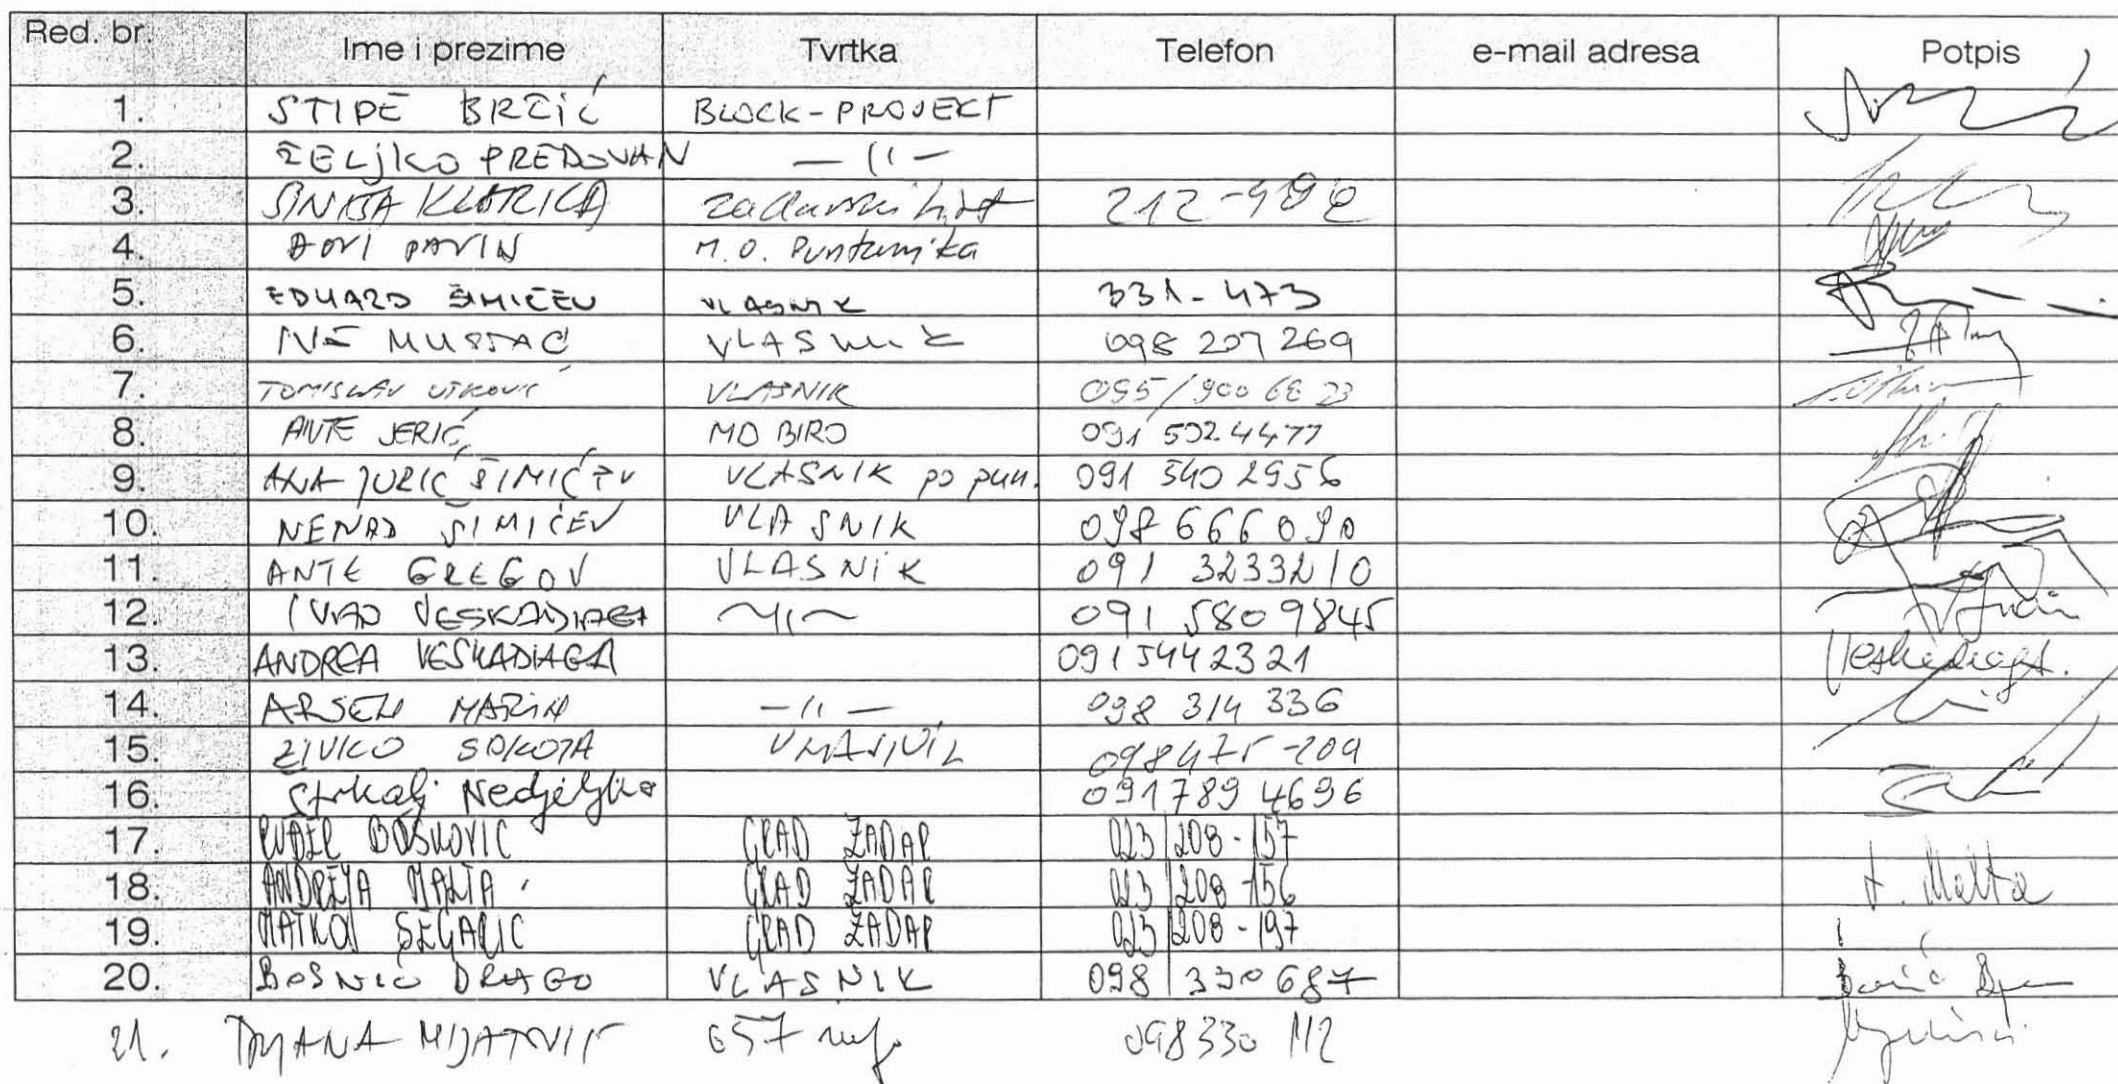 Red. br. Ime i prezime Tvrtka Telefon e-mail adresa Potpis
1. STIPE BRČIĆ BLOCK-PROJEKT
2. ŽELJKO PREDOVAN — 11 —
3. SINIŠA KLARICA Zadarski list 212-492
4. DOVI PAVIN M.O. Puntamika
5. EDUARD ŠIMIČEV VLASNIK 331-473
6. IVE MUSTAĆ VLASNIK 098 207 269
7. TOMISLAV UTKOVIĆ VLASNIK 095/900 68 23
8. ANTE JERIĆ MD BIRO 091 502 4477
9. ANA JURIĆ ŠIMIČEV VLASNIK po pun. 091 540 2956
10. NENAD ŠIMIČEV VLASNIK 098 666 090
11. ANTE GREGOV VLASNIK 091 3233210
12. IVAO VESKADIAGA — 11 — 091 5809845
13. ANDREA VESKADIAGA 0915442321 Veskadiaga.
14. ARSEN MARIN — 11 — 098 314 336
15. ŽIVKO SPKOTA VLASNIK 098475-209
16. Štrkalj Nedjeljka 0917894696
17. RUĐER BOŠKOVIĆ GRAD ZADAR 023/208-157
18. ANDREJA MALTA GRAD ZADAR 023/208-156 A. Malta
19. MATKO SEGARIĆ GRAD ZADAR 023/208-197
20. BOSNIĆ DRAGO VLASNIK 098/330687
21. DIJANA MIJATOVIĆ 657 098330 112